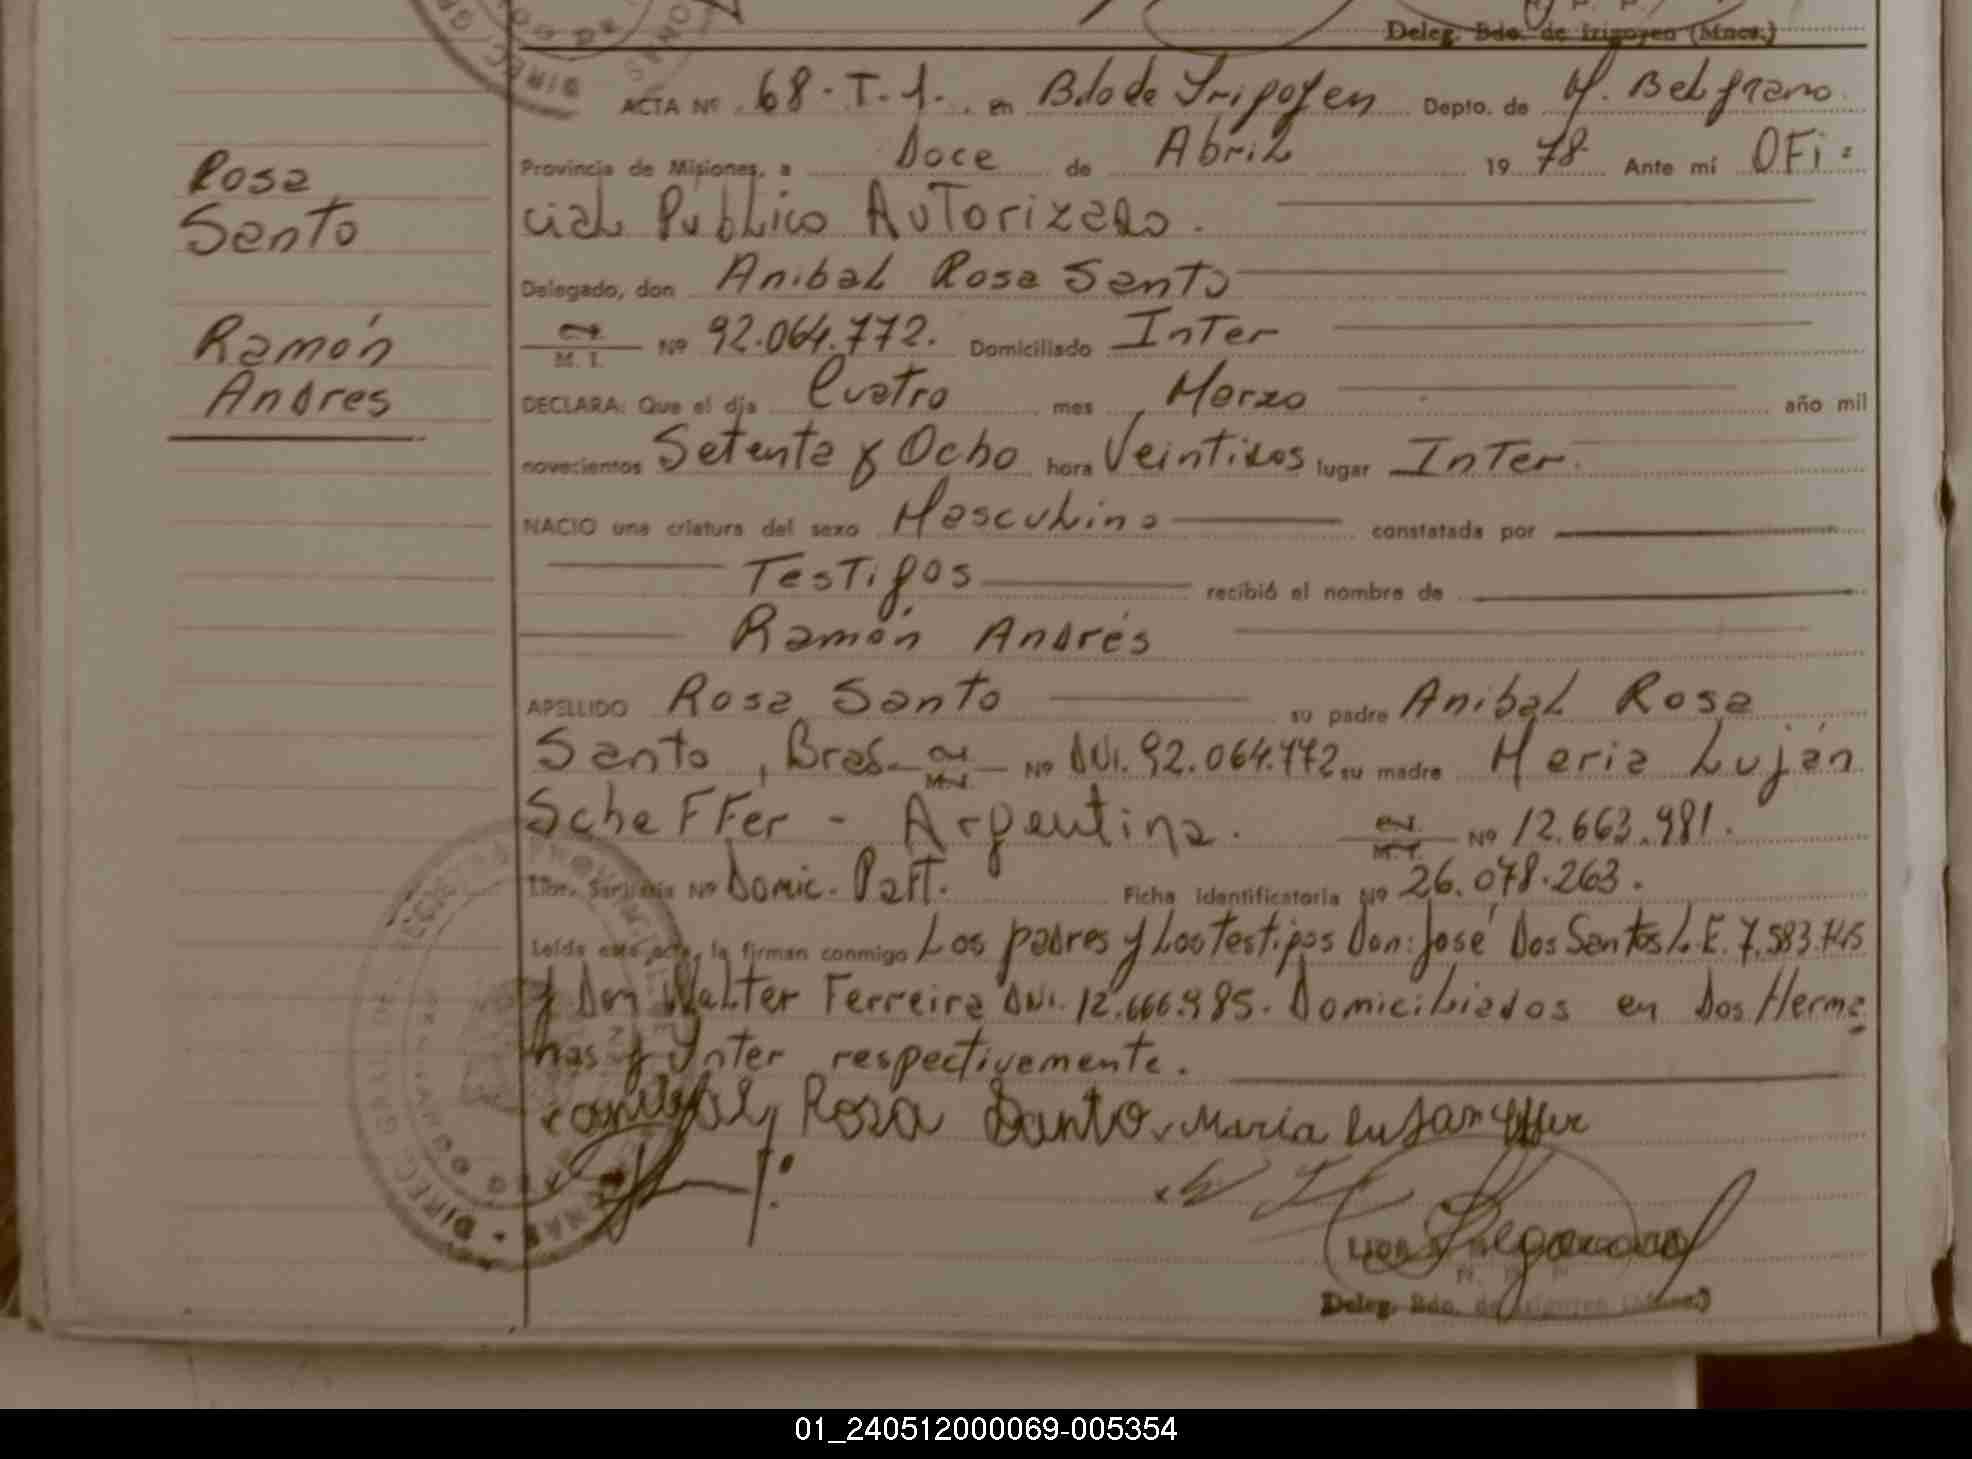 Deleg. Bdo. de Irigoyen (Mnes.)
ACTA Nº 68 - T. 1. en Bdo de Irigoyen Depto. de M. Belgrano
Provincia de Misiones, a Doce de Abril 1978 Ante mí OFi=
cial Publico Autorizado.
Delegado, don Anibal Rosa Santo
M. I. Nº 92.064.772. Domiciliado Inter
DECLARA: Que el día Cuatro mes Marzo año mil
novecientos Setenta y Ocho hora Veintidos lugar Inter.
NACIO una criatura del sexo Masculino constatada por
Testigos recibió el nombre de
Ramón Andrés
APELLIDO Rosa Santo su padre Anibal Rosa
Santo, Bras. M.I. Nº DNI. 92.064.772 su madre Maria Luján
Scheffer - Argentina. M.I. Nº 12.663.981.
Libr. Sanitaria Nº Domic. Part. Ficha identificatoria Nº 26.078.263.
Leída esta acta, la firman conmigo Los padres y Los Testigos Don: José Dos Santos L.E. 7.583.745
y Don Walter Ferreira DNI. 12.666.985. Domiciliados en Dos Herma
nas y Inter respectivamente.
Rosa
Santo
Ramón
Andres
anibal Rosa Santo María Lujan
Deleg. Bdo. de Irigoyen (Mnes.)
01_240512000069-005354